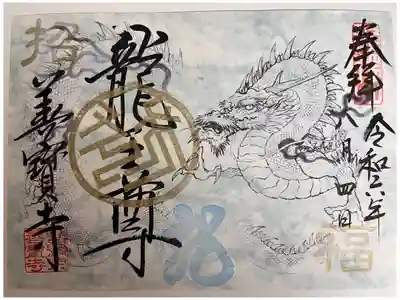 奉拝
令和六年
八月四日
龍王尊
善寳寺
招
福